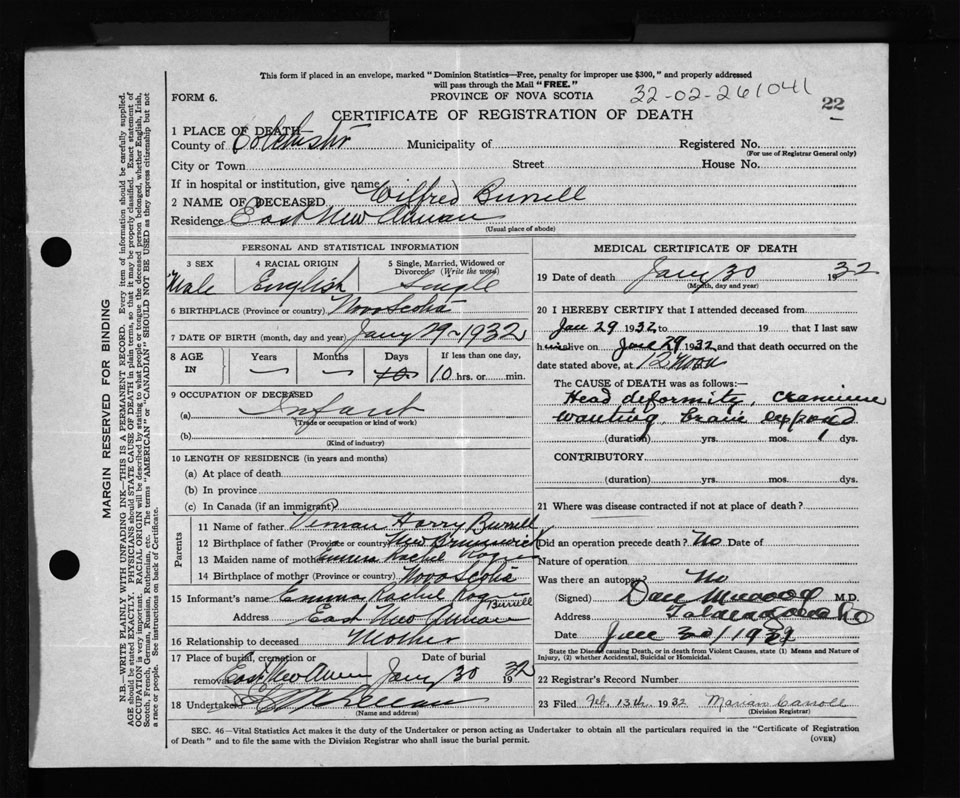 This form if placed in an envelope, marked "Dominion Statistics—Free, penalty for improper use $300," and properly addressed
will pass through the Mail "FREE."
FORM 6.
PROVINCE OF NOVA SCOTIA
32-02-261041
22
CERTIFICATE OF REGISTRATION OF DEATH
1 PLACE OF DEATH—
County of Colchester Municipality of Registered No.
(For use of Registrar General only)
City or Town Street House No.
If in hospital or institution, give name
2 NAME OF DECEASED Wilfred Burrell
Residence East New Annan
(Usual place of abode)
PERSONAL AND STATISTICAL INFORMATION
3 SEX 4 RACIAL ORIGIN 5 Single, Married, Widowed or
Divorced (Write the word)
Male English Single
6 BIRTHPLACE (Province or country) Nova Scotia
7 DATE OF BIRTH (month, day and year) Jany 29 1932
8 AGE IN Years Months Days If less than one day,
10 hrs. or min.
9 OCCUPATION OF DECEASED
(a) Infant
(Trade or occupation or kind of work)
(b)
(Kind of industry)
10 LENGTH OF RESIDENCE (in years and months)
(a) At place of death
(b) In province
(c) In Canada (if an immigrant)
Parents
11 Name of father Harry Burrell
12 Birthplace of father (Province or country) New Brunswick
13 Maiden name of mother Emma Rachel
14 Birthplace of mother (Province or country) Nova Scotia
15 Informant's name Emma Rachel Burrell
Address East New Annan
16 Relationship to deceased Mother
17 Place of burial, cremation or Date of burial
removal East New Annan Jany 30 1932
18 Undertaker
(Name and address)
MEDICAL CERTIFICATE OF DEATH
19 Date of death Jany 30 1932
(Month, day and year)
20 I HEREBY CERTIFY that I attended deceased from
Jan 29 1932 to 19 that I last saw
h im alive on Jan 29 1932 and that death occurred on the
date stated above, at 12 Noon
The CAUSE OF DEATH was as follows:—
Head deformity, cranium
wanting, brain exposed
(duration) yrs. mos. dys.
CONTRIBUTORY
(duration) yrs. mos. dys.
21 Where was disease contracted if not at place of death?
Did an operation precede death? No Date of
Nature of operation
Was there an autopsy No
(Signed) Dan M.D.
Address Tatamagouche
Date
State the Disease causing Death, or in death from Violent Causes, state (1) Means and Nature of
Injury, (2) whether Accidental, Suicidal or Homicidal.
22 Registrar's Record Number
23 Filed Feb. 13th 1932 Marian Carroll
(Division Registrar)
SEC. 46—Vital Statistics Act makes it the duty of the Undertaker or person acting as Undertaker to obtain all the particulars required in the "Certificate of Registration
of Death" and to file the same with the Division Registrar who shall issue the burial permit.
(OVER)
MARGIN RESERVED FOR BINDING
N.B.—WRITE PLAINLY WITH UNFADING INK—THIS IS A PERMANENT RECORD. Every item of information should be carefully supplied.
AGE should be stated EXACTLY. PHYSICIANS should STATE CAUSE OF DEATH in plain terms, so that it may be properly classified. Exact statement of
OCCUPATION is very important. RACIAL ORIGIN will be described by stating to what people or tongue the deceased person belonged, whether English, Irish,
Scotch, French, German, Russian, Ruthenian, etc. The terms "AMERICAN" or "CANADIAN" SHOULD NOT BE USED as they express citizenship but not
a race or people. See instructions on back of Certificate.